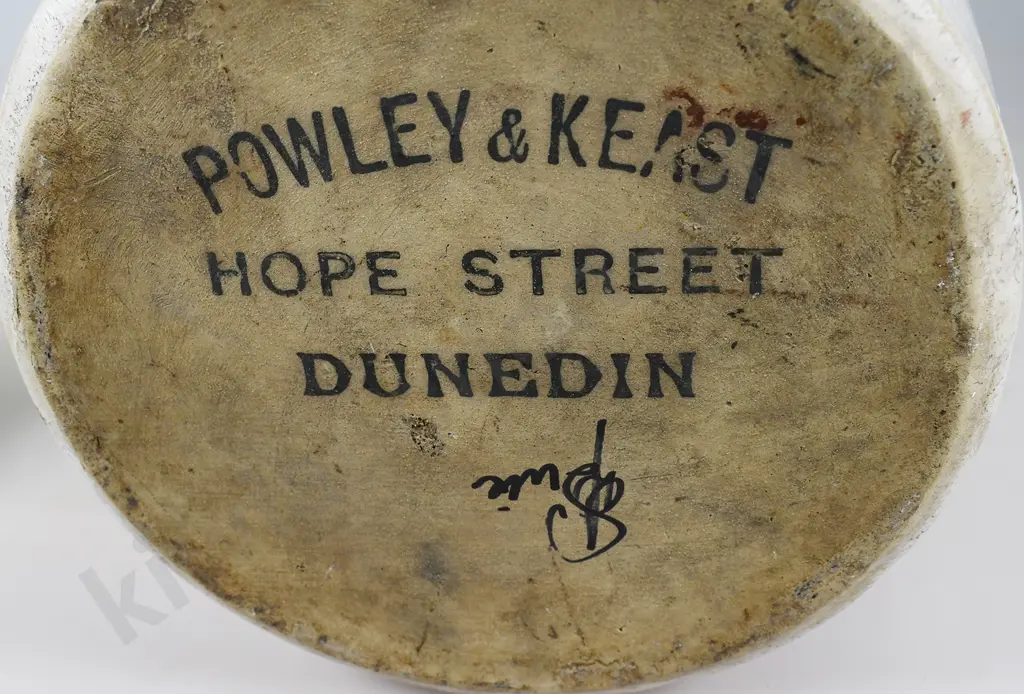 POWLEY & KEAST
HOPE STREET
DUNEDIN